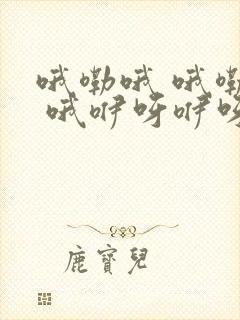 哦嘞哦 哦嘞
哦咿呀咿呀
鹿寶兒